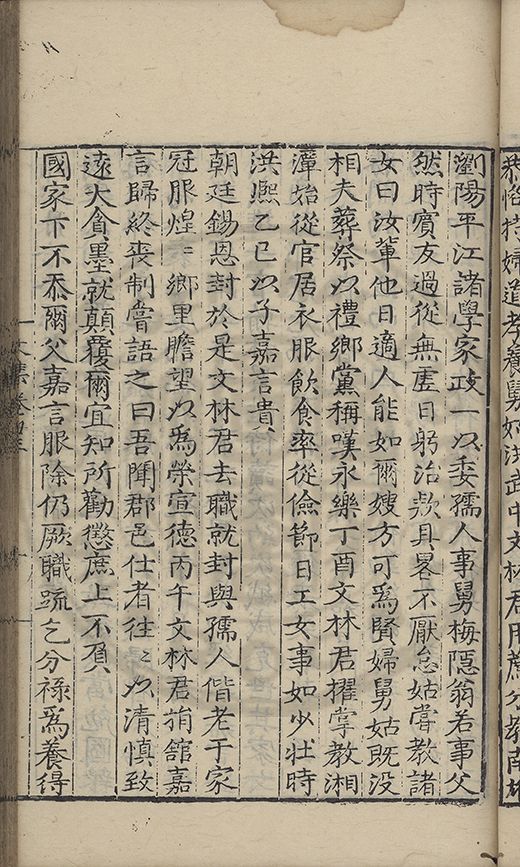 恭恪持婦道孝養舅姑洪武中文林君用薦分教南
瀏陽平江諸學家政一以委孺人事舅梅隱翁若事父
然時賓友過從無虗日躬治欵具畧不厭怠姑嘗教諸
女曰汝輩他日適人能如爾嫂方可爲賢婦舅姑既没
相夫葬祭以禮鄉黨稱嘆永樂丁酉文林君擢掌教湘
潭始從官居衣服飲食率從儉節日工女事如少壯時
洪熈乙巳以子嘉言貴
朝廷錫恩封於是文林君去職就封與孺人偕老于家
冠服煌〻鄉里瞻望以爲榮宣德丙午文林君捐舘嘉
言歸終喪制嘗語之曰吾聞郡邑仕者往〻以清慎致
遠大貪墨就顛覆爾宜知所勸懲庶上不負
國家下不忝爾父嘉言服除仍厥職疏乞分禄爲養得
文集卷